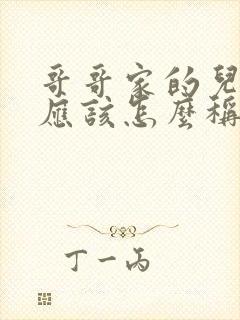 哥哥家的兒
應該怎麼稱
丁一丙